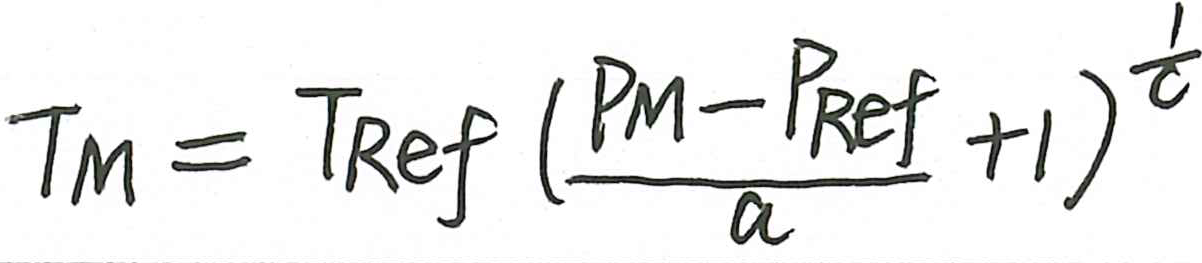 T_M = T_{Ref} (\frac{P_M - P_{Ref}}{a} + 1)^{\frac{1}{c}}